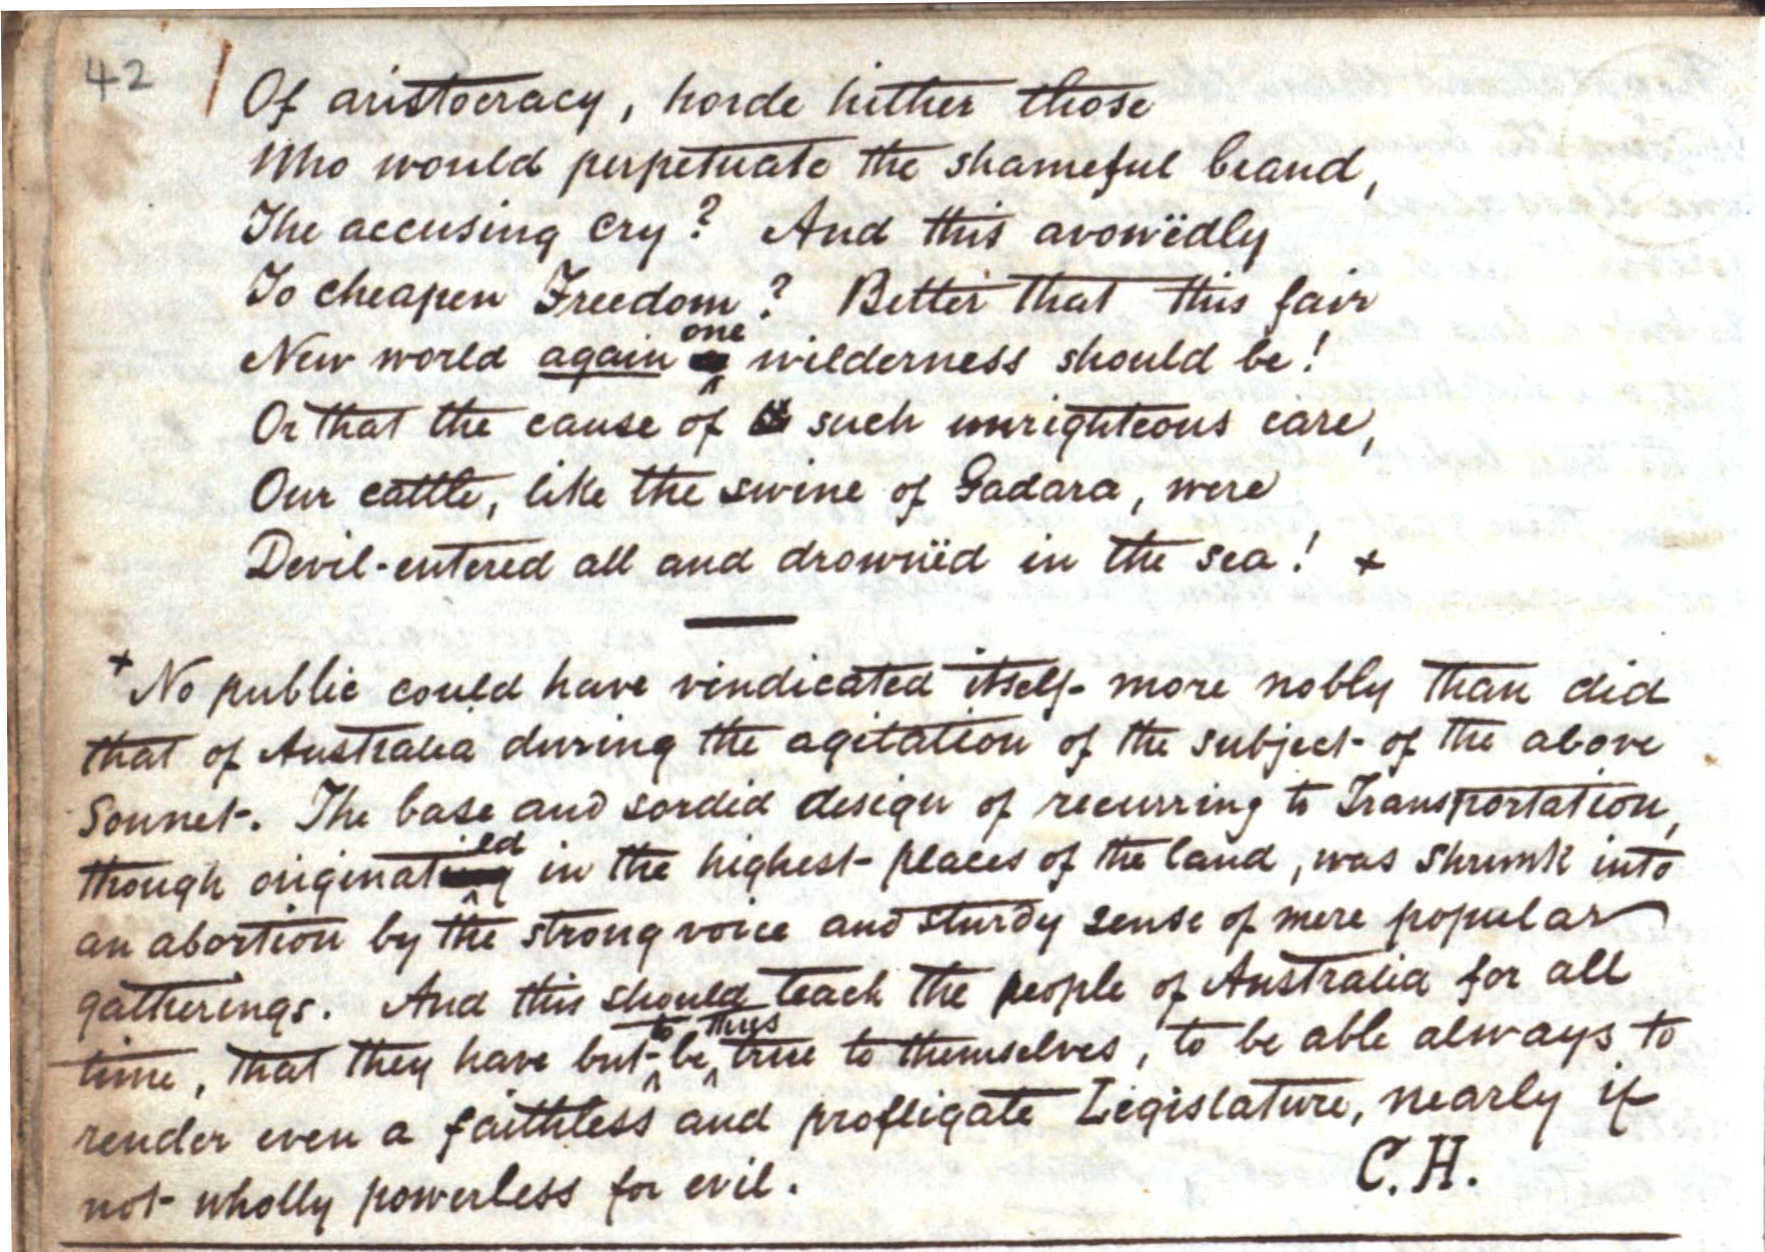 42
Of aristocracy, horde hither those
Who would perpetuate the shameful brand,
The accusing cry? And this avowëdly
To cheapen Freedom? Better that this fair
New world again one wilderness should be!
Or that the cause of such unrighteous care,
Our cattle, like the swine of Gadara, were
Devil-entered all and drownëd in the sea! +
+ No public could have vindicated itself more nobly than did
that of Australia during the agitation of the subject of the above
Sonnet. The base and sordid design of recurring to Transportation,
though originated in the highest places of the land, was shrunk into
an abortion by the strong voice and sturdy sense of mere popular
gatherings. And this should teach the people of Australia for all
time, that they have but to be thus true to themselves, to be able always to
render even a faithless and profligate Legislature, nearly if
not wholly powerless for evil.
C. H.